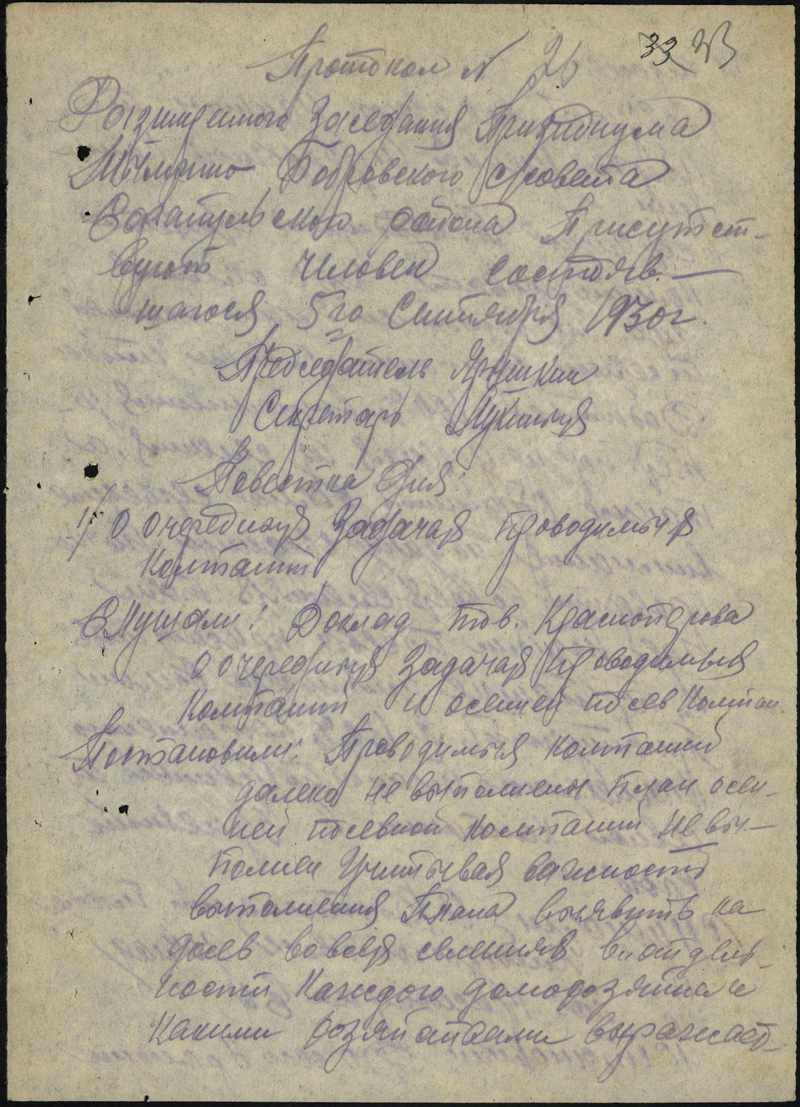 33 23
Протокол N 26
Заседания Призидиума
Бобровского с/совета
Сарапульского района Присутст-
вуют человек состояв-
шагося 5го Сентября 1930г.
Председатель Ярушкин
Секретарь
Повестка Дня:
1/ О очередных Задачах проводимых
Компаний
Слушали: Доклад тов. Красноперова
о очередных Задачах проводимых
Компаний и осеней посев Компан.
Постановили: Проводимых Компаний
далеко не выполнены План осен-
ней посевной Компаний не вы-
полнен Учитывая важность
выполнения Плана выявить на
досев во всех селениях в отдель-
ности Каждого домохозяина и
Какими хозяйствами выражает-